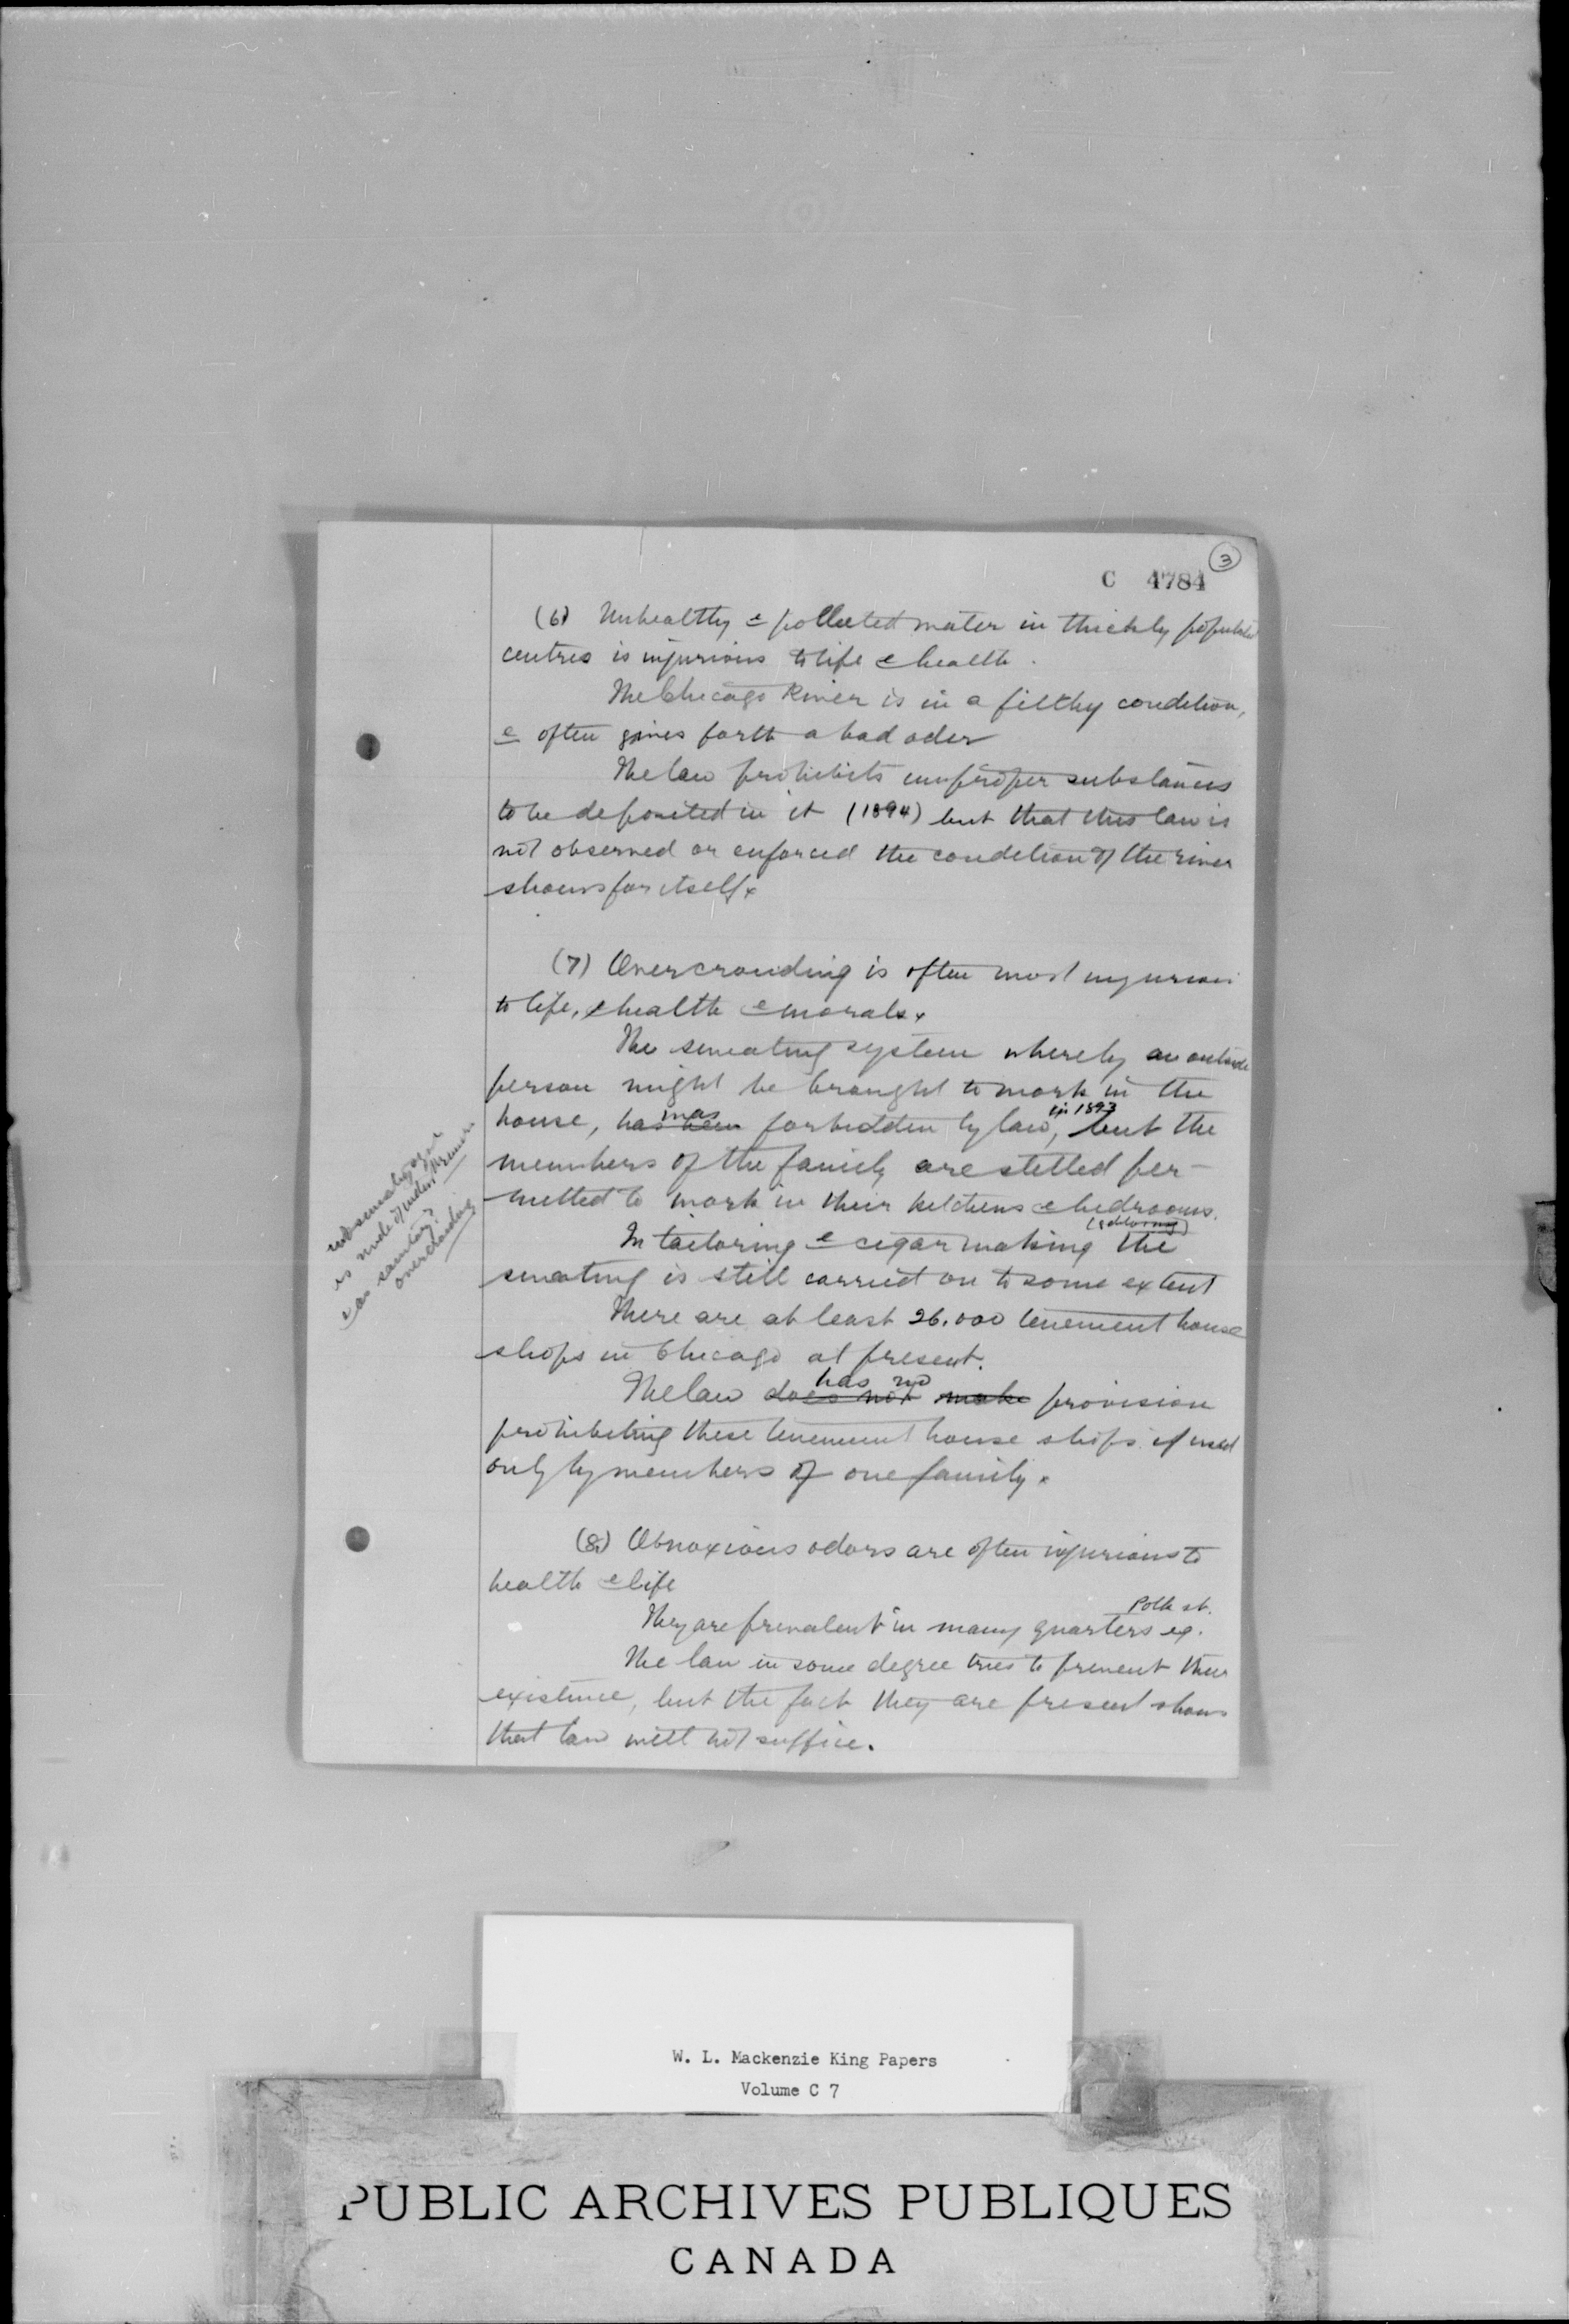 3
C 4784
(6) Unhealthy & polluted water in thickly populated
centres is injurious to life & health.
The Chicago River is in a filthy condition,
& often gives forth a bad oder
The law prohibits improper substances
to be deposited in it (1894) but that this law is
not observed or enforced the condition of the river
shows for itself.
(7) Overcrowding is often most injurious
to life, & health & morals.
The sweating system whereby an outside
person might be brought to work in the
was in 1893
house, has been forbidden by law, but the
members of the family are stilled per-
mitted to work in their kitchens & bedrooms.
In tailoring & cigar making the
sweating is still carried on to some extent
There are at least 26.000 tenement house
shops in Chicago at present.
has no
The law does not make provision
prohibiting these tenement house shops if used
only by members of one family.
is made
& as sanitary
overcrowding
(8) Obnoxious odors are often injurious to
health & life
Polk st.
They are prevalent in many quarters eg.
The law in some degree tries to prevent their
existence, but the fact they are present shows
that law will not suffice.
W. L. Mackenzie King Papers
Volume C 7
PUBLIC ARCHIVES PUBLIQUES
CANADA